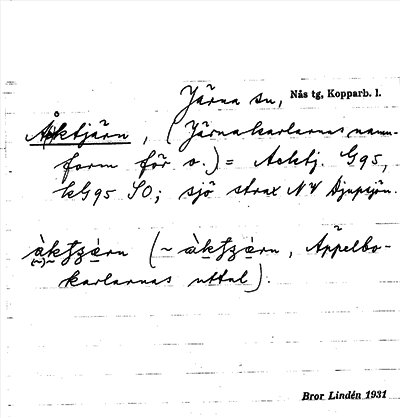 Järna sn, Nås tg, Kopparb. l.
Åcktjärn, (Järnakarlarnas namn-
form för o.) = Acktj. G95,
kG95 SO; sjö strax NV Djupsjön.
àktʒärn (~ àktʒärn, Äppelbo-
karlarnas uttal).
Bror Lindén 1931